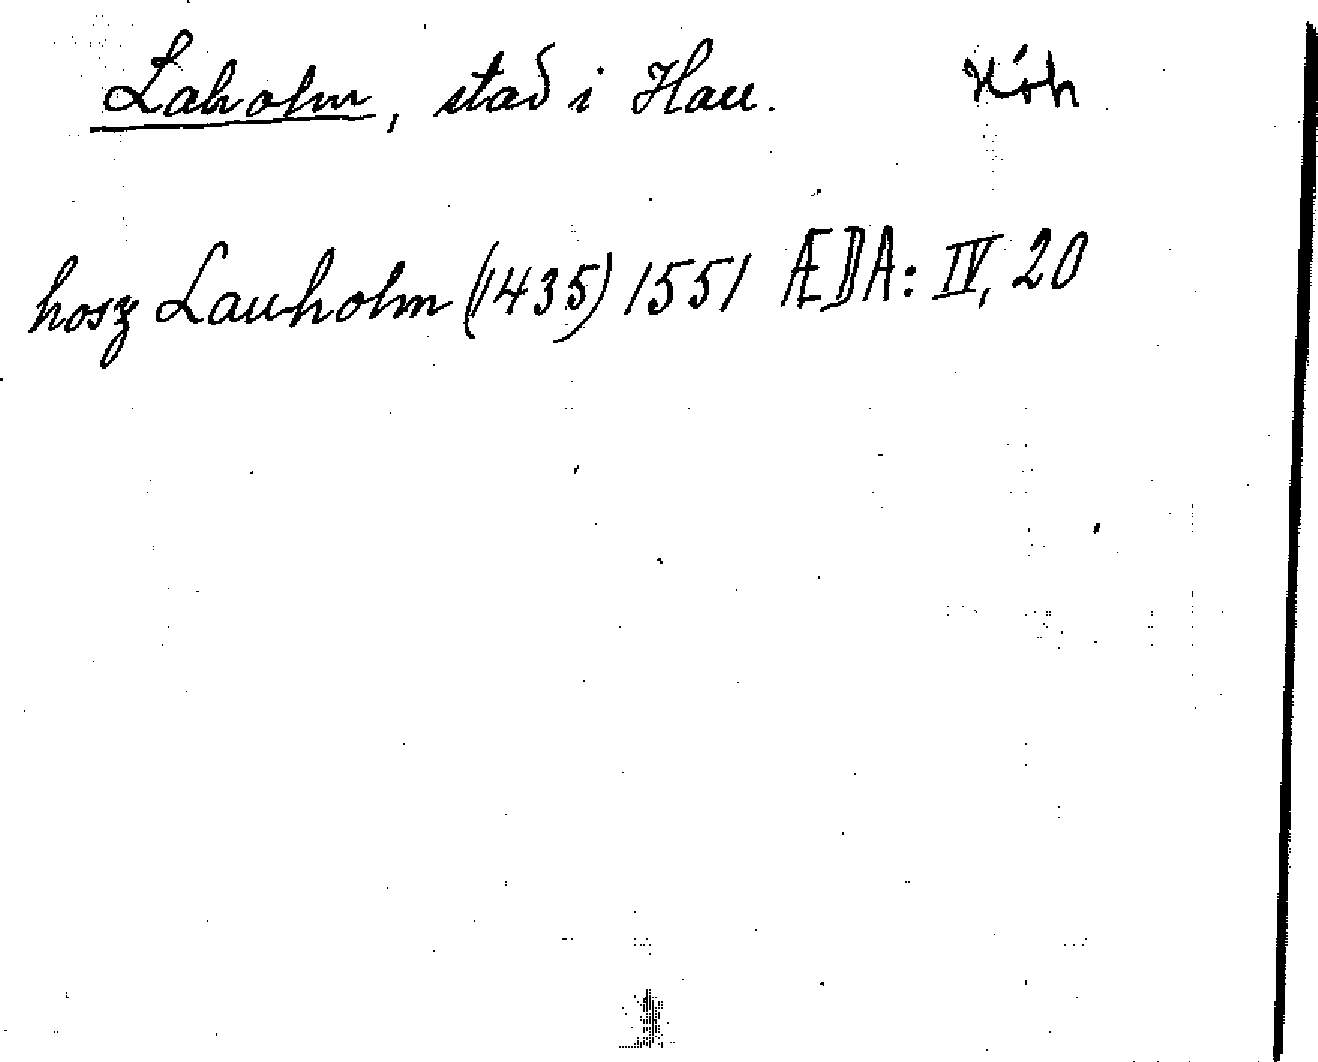 Laholm, stad i Hall.
hosz Lauholm (1435) 1551 ÆDA: IV, 20